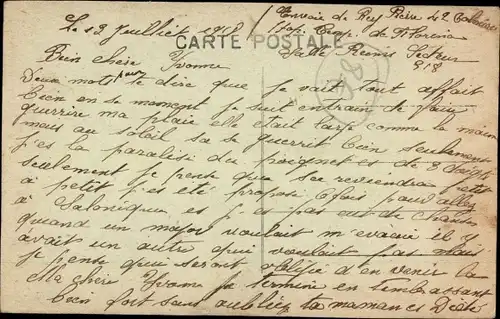 Le 13 Juillet 1918
Envoie de Rey Pierre 42 Coloniale
CARTE POSTALE
Hop. Temp. de Florina
Salle Reims Secteur
518
Bien chère Yvonne
Deux mots pour te dire que je vait tout affait
bien en se moment je suit entrain de faire
guerrire ma plaie elle était large comme la main
mais au soleil sa se guerrit bien seulement
j'es la paralisi du poignet es de 3 doigts
seulement je pense que sa reviendra petit
à petit j'es été proposé 2 fois pour aller
à Salonique es j'es pas eut de chance
quand un major voulait m'evacué il y
avait un autre qui voulait pas mais
je pense qui seront oblisé d'en venir la
Ma chère Yvonne je termine en t'embrassant
bien fort sans oublier ta maman es Dédé